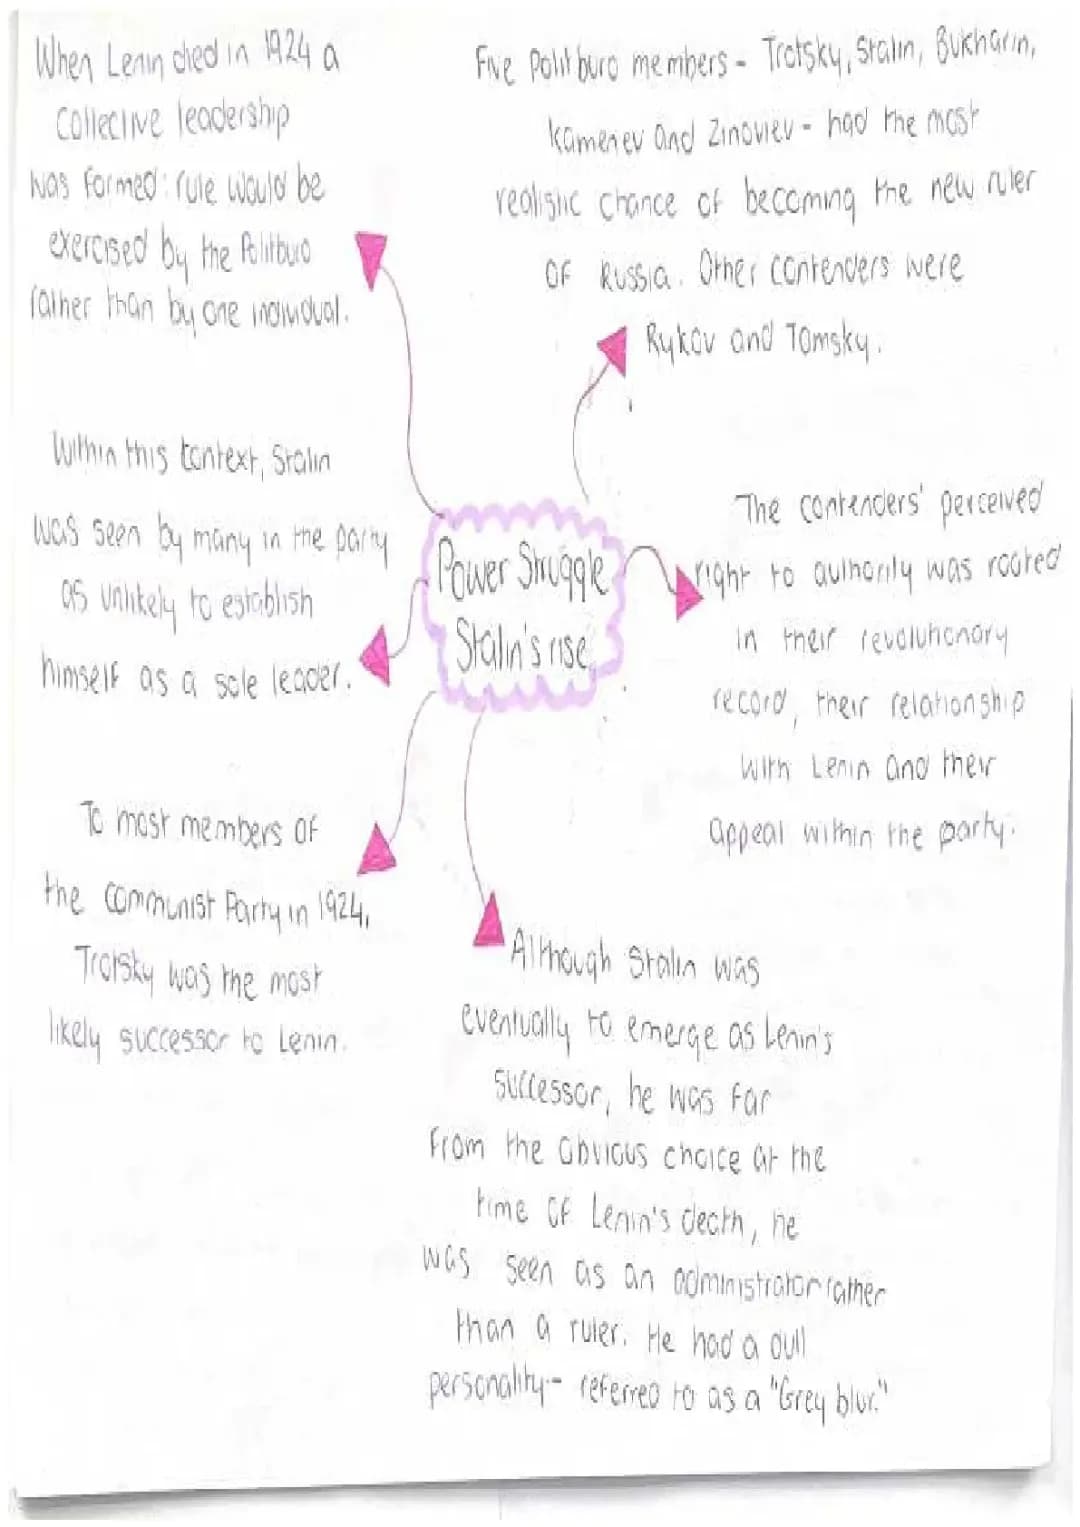 When Lenin died in 1924 a
collective leadership
was formed: rule would be
exercised by the Politburo
rather than by one individual.
Five Politburo members - Trotsky, Stalin, Bukharin,
Kamenev and Zinoviev - had the most
realistic chance of becoming the new ruler
of Russia. Other contenders were
Rykov and Tomsky.
Within this context, Stalin
was seen by many in the party
as unlikely to establish
himself as a sole leader.
Power Struggle
Stalin's rise
The contenders' perceived
right to authority was rooted
in their revolutionary
record, their relationship
with Lenin and their
appeal within the party.
To most members of
the Communist Party in 1924,
Trotsky was the most
likely successor to Lenin.
Although Stalin was
eventually to emerge as Lenin's
successor, he was far
from the obvious choice at the
time of Lenin's death, he
was seen as an administrator rather
than a ruler. He had a dull
personality - referred to as a "Grey blur."